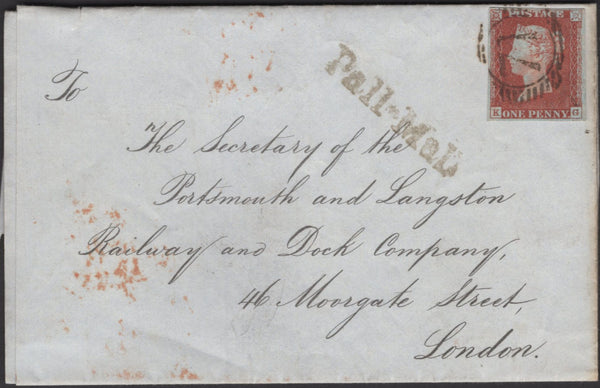 POSTAGE
K G
ONE PENNY
Pall-Mall
To
The Secretary of the
Portsmouth and Langston
Railway and Dock Company,
46 Moorgate Street,
London.